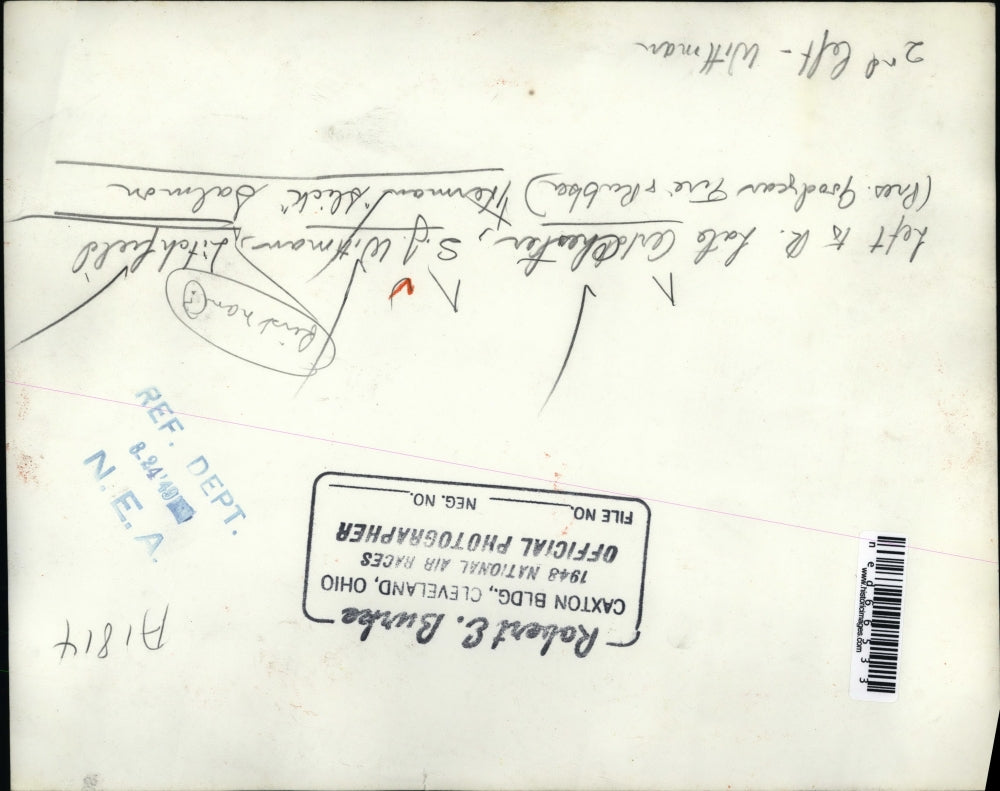 A1814
Robert E. Burke
CAXTON BLDG., CLEVELAND, OHIO
1948 NATIONAL AIR RACES
OFFICIAL PHOTOGRAPHER
FILE NO. NEG. NO.
REF. DEPT.
8-24'49
N. E. A.
first name?
Left to R. Late Art Chester, S.J. Wittman, Litchfield
(Pres. Goodyear Tire & Rubber) Herman "slick" Salmon
2nd left - Wittman
ned66533
www.historicimages.com